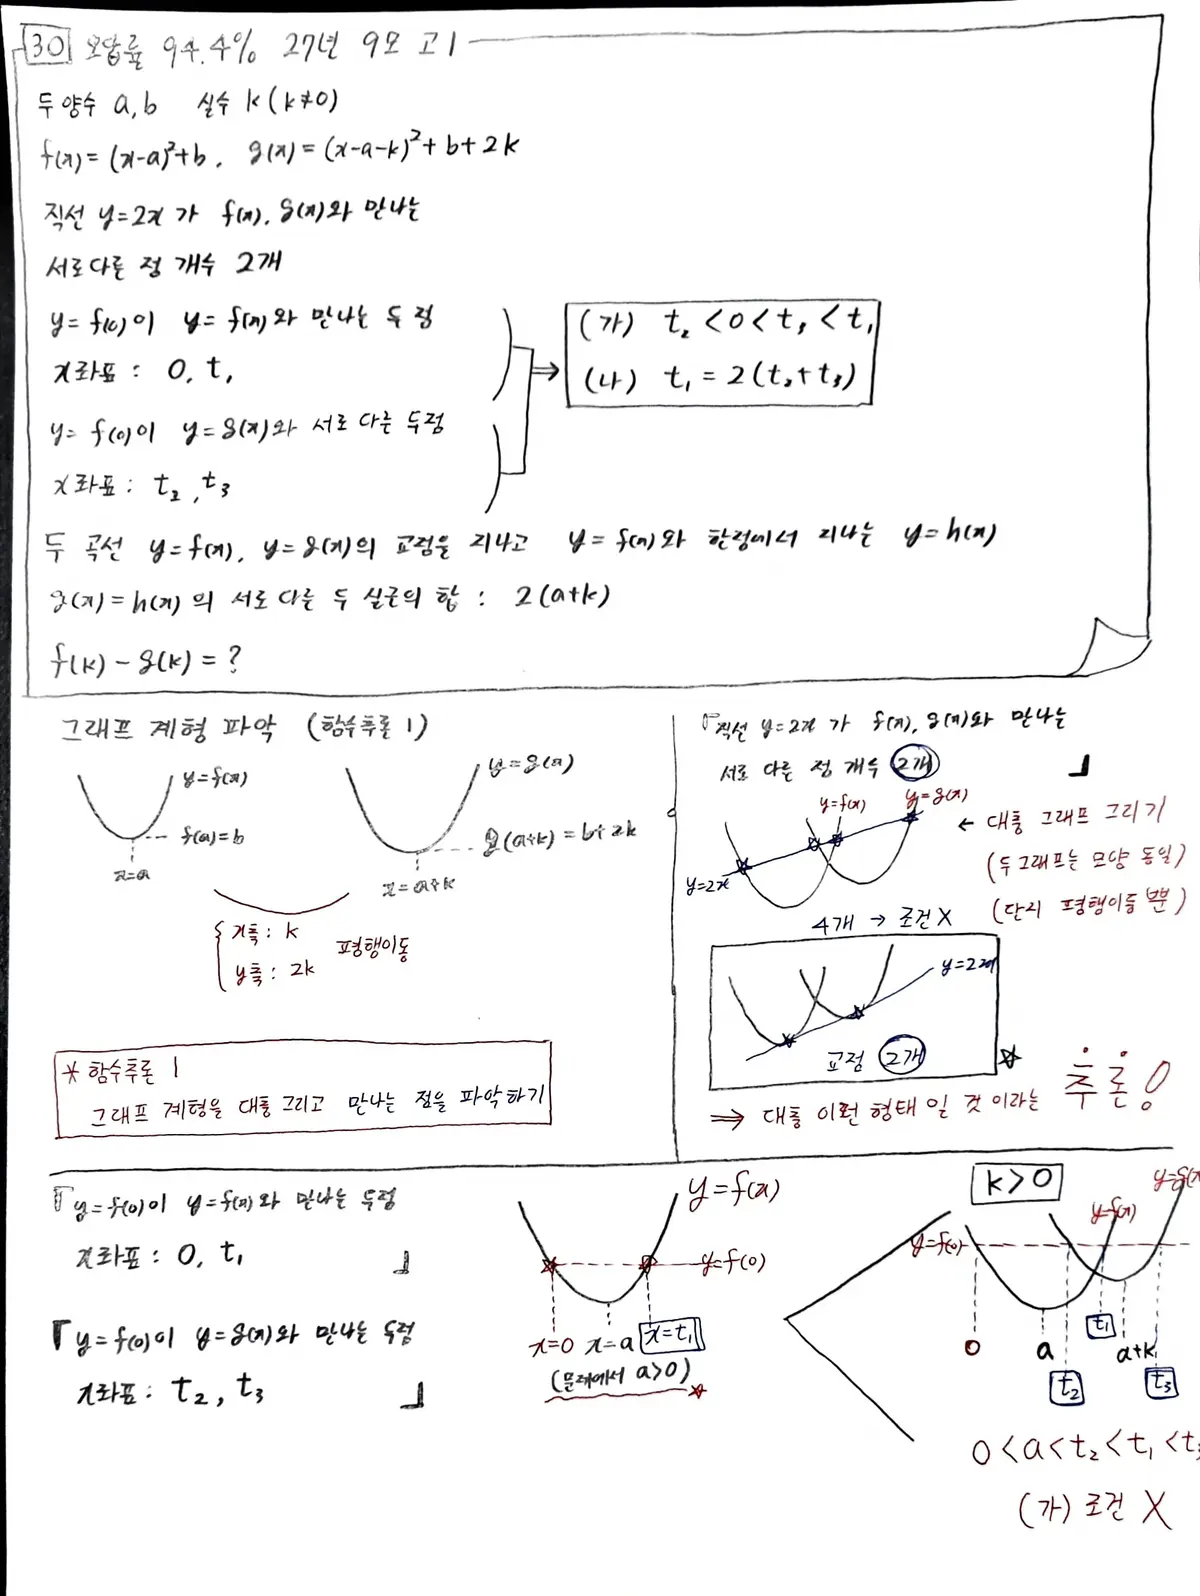 30 오답률 94.4% 27년 9모 고1
두 양수 a, b 실수 k (k≠0)
f(x) = (x-a)²+b, g(x) = (x-a-k)²+b+2k
직선 y=2x 가 f(x), g(x)와 만나는
서로다른 점 개수 2개
y=f(0)이 y=f(x)와 만나는 두 점
x좌표 : 0, t₁
y=f(0)이 y=g(x)와 서로 다른 두점
x좌표 : t₂, t₃
(가) t₂ < 0 < t₃ < t₁
(나) t₁ = 2(t₂+t₃)
두 곡선 y=f(x), y=g(x)의 교점을 지나고 y=f(x)와 한점에서 지나는 y=h(x)
g(x)=h(x)의 서로 다른 두 실근의 합 : 2(a+k)
f(k)-g(k)=?
그래프 계형 파악 (함수추론 1)
y=f(x)
f(a)=b
x=a
y=g(x)
g(a+k)=b+2k
x=a+k
x축: k
y축: 2k
평행이동
* 함수추론 1
그래프 계형을 대충 그리고 만나는 점을 파악하기
「직선 y=2x 가 f(x), g(x)와 만나는
서로 다른 점 개수 2개」
y=f(x) y=g(x)
y=2x
← 대충 그래프 그리기
(두그래프는 모양 동일)
(단지 평행이동 뿐)
4개 → 조건 X
y=2x
교점 2개
⇒ 대충 이런 형태 일 것 이라는 추론!
「y=f(0)이 y=f(x)와 만나는 두점
x좌표 : 0, t₁」
「y=f(0)이 y=g(x)와 만나는 두점
x좌표 : t₂, t₃」
y=f(x)
y=f(0)
x=0 x=a x=t₁
(문제에서 a>0)
k>0
y=g(x
y=f(x)
y=f(0)
0 a t₂ t₁ a+k t₃
0<a<t₂<t₁<t₃
(가) 조건 X